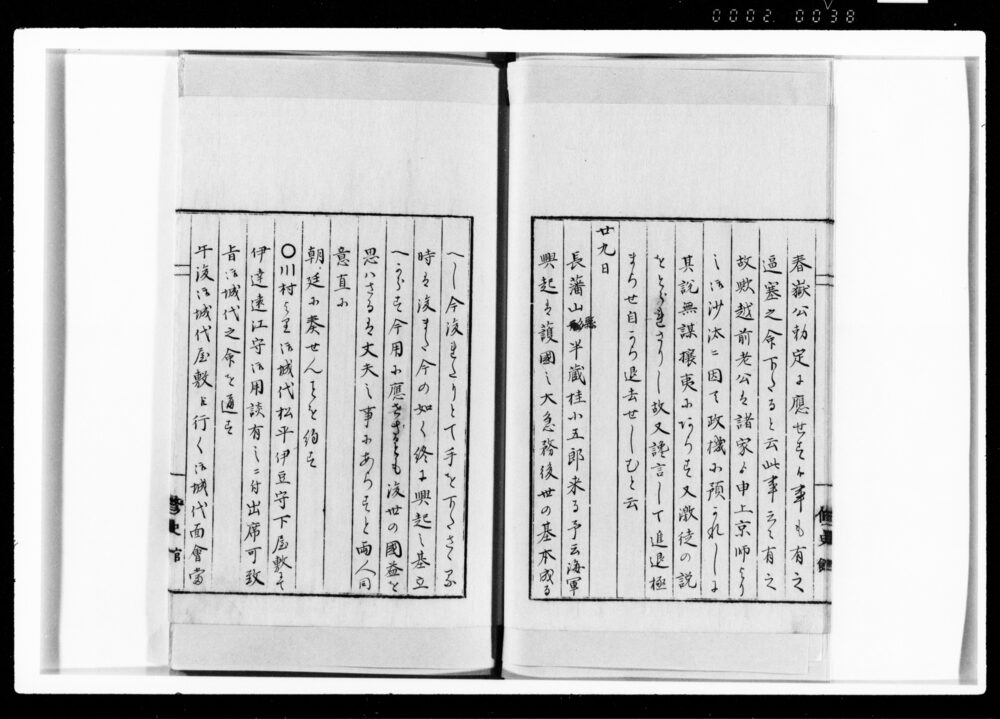 0002 0038
春嶽公勅定に應せす今事も有之
逼塞之命下たると云此事云々有之
故歟越前老公は諸家ゟ申上京師ゟ
之御沙汰ニ因て政機に預かれしに
其説無謀攘夷にあらす又激徒の説
をとられさりし故又讒言して進退極
まらせ自から退去せしむと云
廿九日
長藩山縣半藏桂小五郎来る予云海軍
興起は護國之大急務後世の基本成る
へし今後れたりとて手を下たさゝる
時は後また今の如く終に興起之基立
へからす今用に應せさるとも後世の國益を
思ハさるは丈夫之事にあらすと両人同
意直に
朝廷に奏せんことを約す
〇川村より御城代松平伊豆守下屋敷にて
伊達遠江守御用談有之ニ付出席可致
旨御城代之命を通す
午後御城代屋敷に行く御城代面會當
修史館
修史館